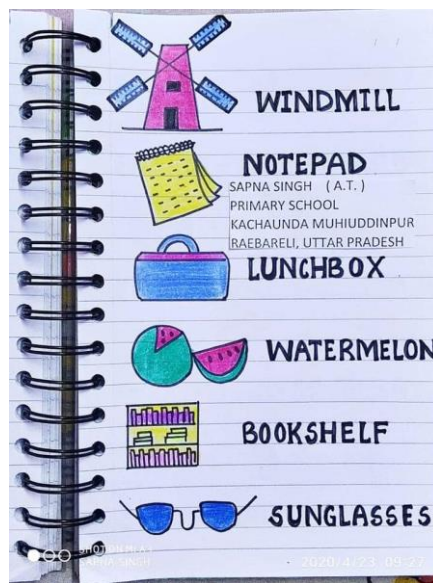 WINDMILL
NOTEPAD
SAPNA SINGH (A.T.)
PRIMARY SCHOOL
KACHAUNDA MUHIUDDINPUR
RAEBARELI, UTTAR PRADESH
LUNCHBOX
WATERMELON
BOOKSHELF
SUNGLASSES
SHOT ON MI A3
SAPNA SINGH
2020/4/23 09:27